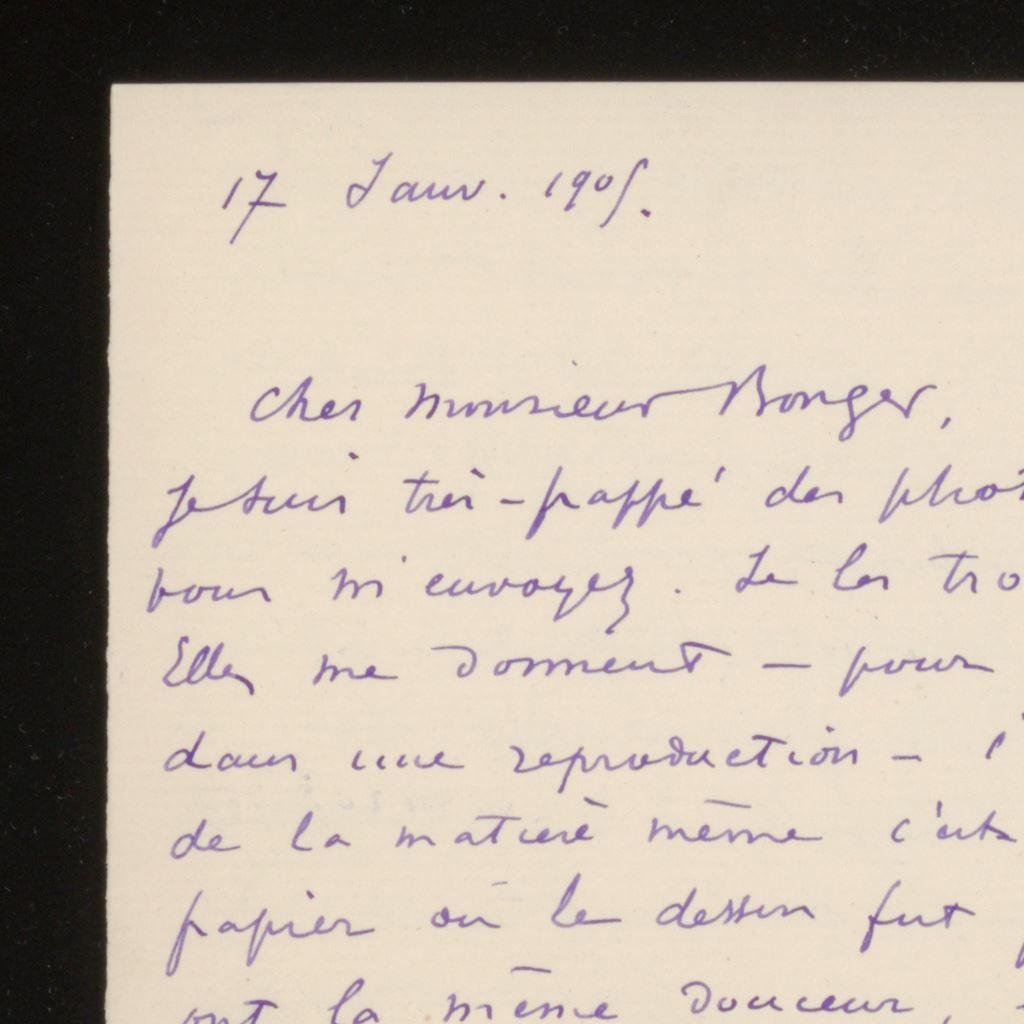 17 Janv. 1905.
Cher Monsieur Bonger,
Je suis très-frappé des phot
vous m'envoyez. Je les tro
Elles me donnent – pour
dans une reproduction – l'
de la matière même c'est
papier où le dessin fut
ont la même douceur,